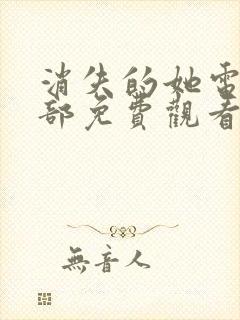 消失的她電
部免費觀看
無音人